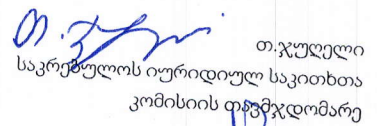 თ.ჯუღელი
საკრებულოს იურიდიულ საკითხთა
კომისიის თავმჯდომარე